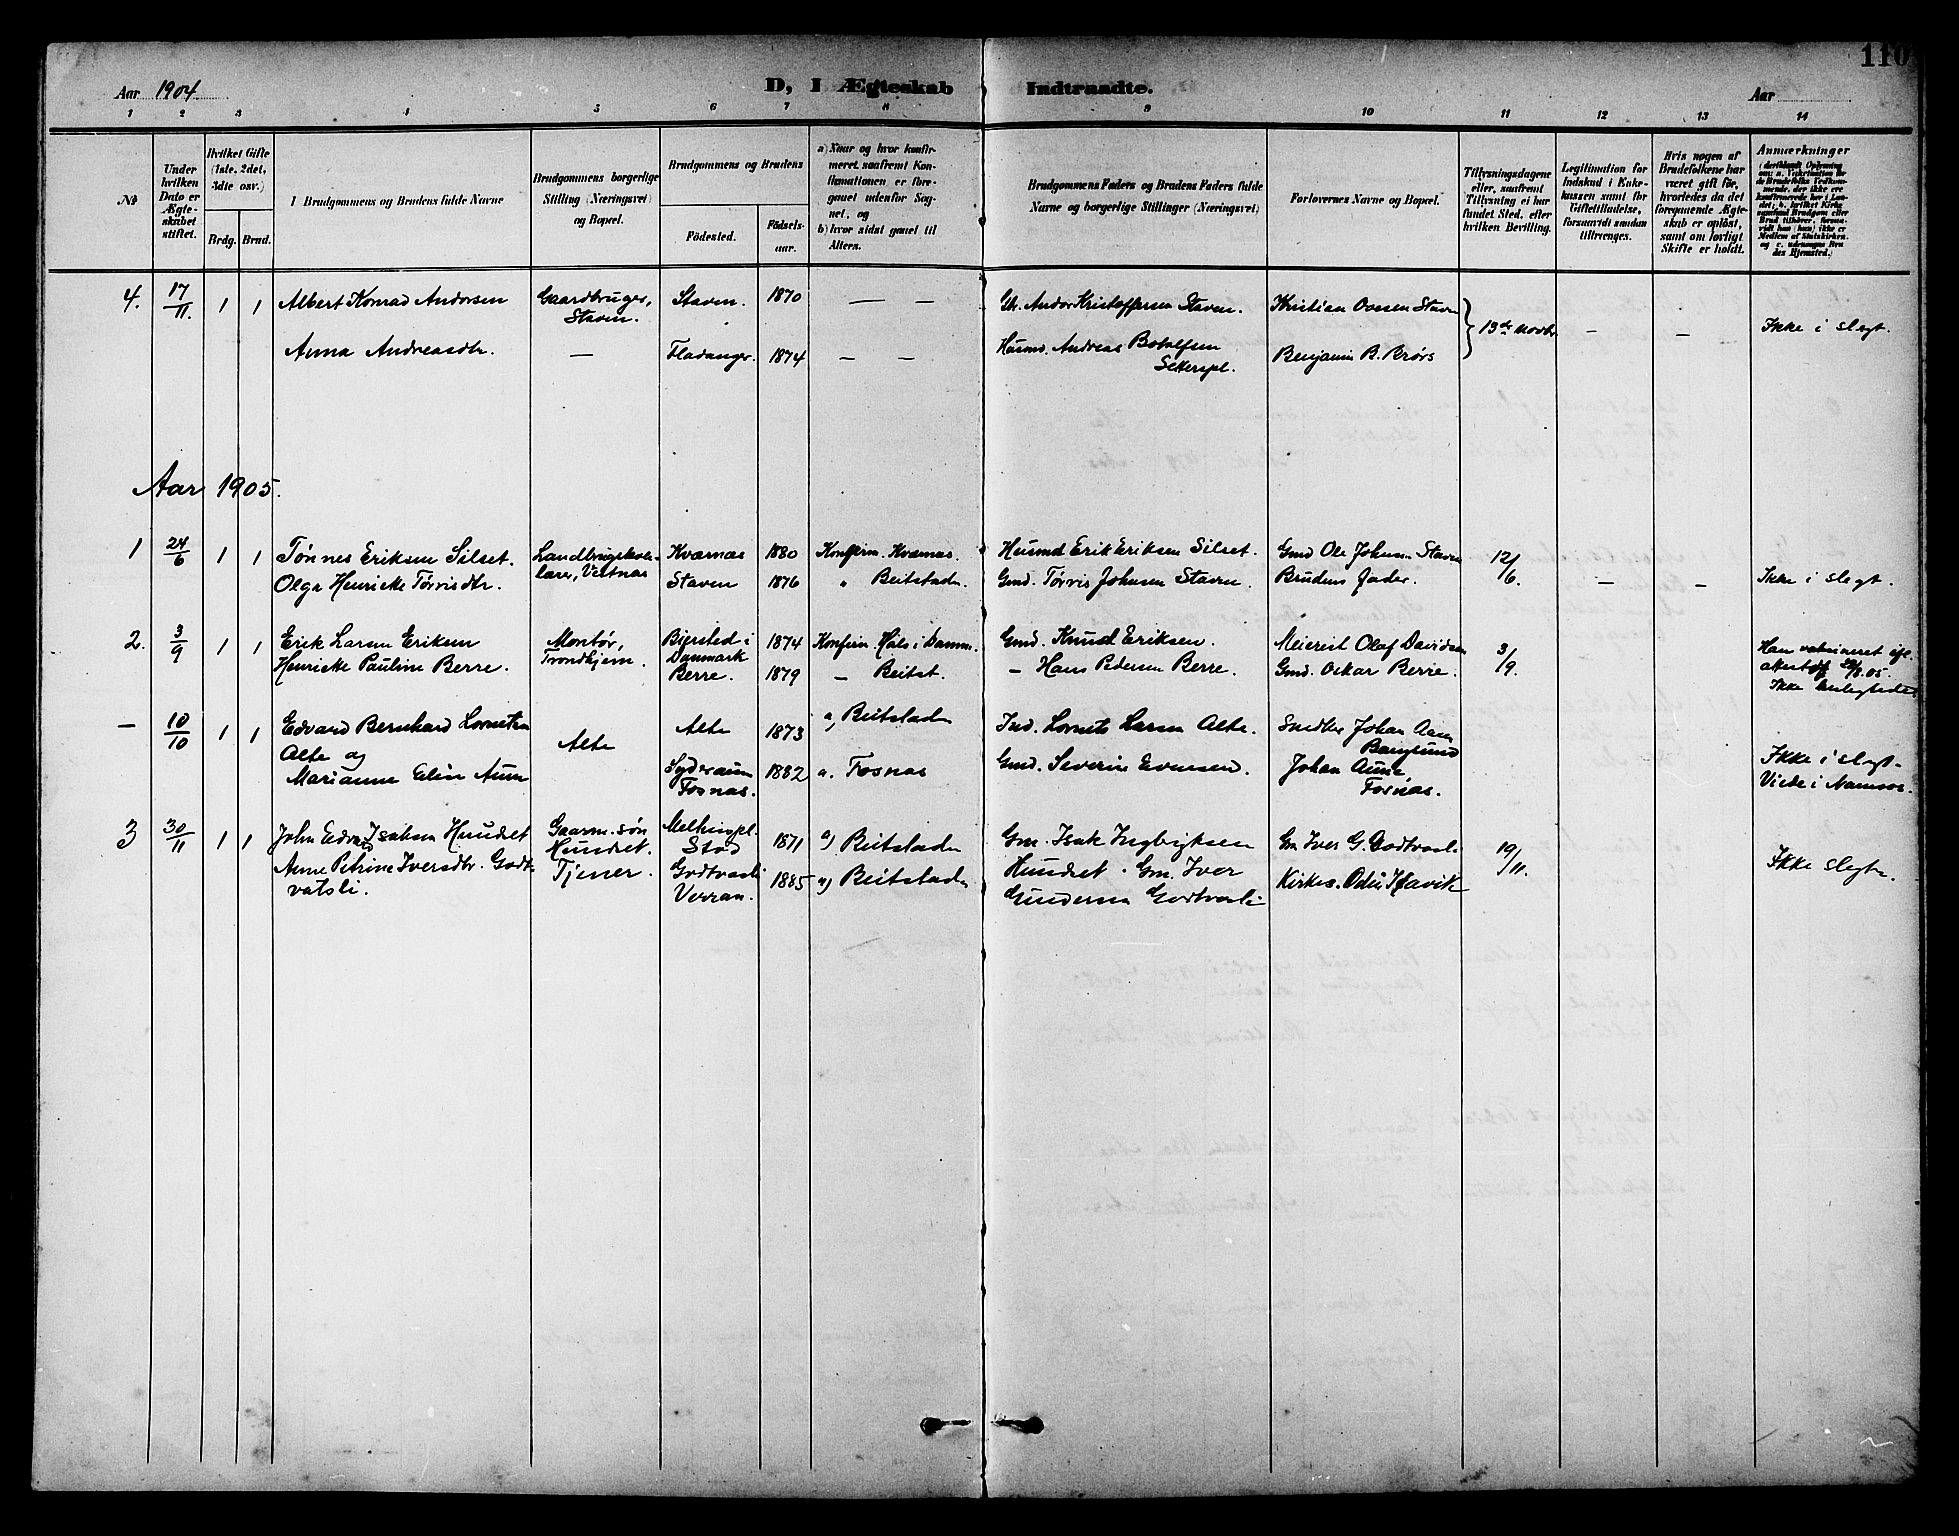 110
Aar 1904
D, I Ægteskab Indtraadte.
Aar
1 2 3 4 5 6 7 8 9 10 11 12 13 14
No
Under hvilken Dato er Ægteskabet stiftet.
Hvilket Gifte (1ste, 2det, 3die osv.)
Brdg. Brud.
Brudgommens og Brudens fulde Navne
Brudgommens borgerlige Stilling (Næringsvei) og Bopæl.
Brudgommens og Brudens
Fødested.
Fødselsaar.
a) Naar og hvor konfirmeret, saafremt Konfirmationen er foregaaet udenfor Sognet, og
b) hvor sidst gaaet til Alters.
Brudgommens Faders og Brudens Faders fulde Navne og borgerlige Stillinger (Næringsvei)
Forlovernes Navne og Bopæl.
Tillysningsdagene eller, saafremt Tillysning ei har fundet Sted, efter hvilken Bevilling.
Legitimation for Indskud i Enkekassen samt for Giftetilladelse, forsaavidt saadan tiltrænges.
Hvis nogen af Brudefolkene har været gift før, hvorledes da det foregaaende Ægteskab er opløst, samt om lovligt Skifte er holdt.
Anmærkninger
4. 17/11. 1 1 Albert Konrad Andorsen Gaardbruger, Staven. Staven. 1870 — — Gb. Andor Kristoffersen Staven. Kristian Ovesen Staven 13de Novbr — — Ikke i slegt.
Anna Andreasdtr. — Fladanger. 1874 — — Husmd. Andreas Botolfsen Seterspl. Benjamin B. Brørs
Aar 1905.
1 24/6 1 1 Tønnes Eriksen Silset. Kværnæs 1880 Konfirm. Kværnæs. Husmd Erik Eriksen Silset. Gmd Ole Johnsen Staven 12/6. — — Ikke i slegt.
Olga Henrikke Tørrisdtr. Staven 1876 " Beitstaden. Gmd. Tørris Johnsen Staven. Brudens Fader.
2. 3/9 1 1 Erik Larsen Eriksen Montør, Trondhjem. Bjersted i Danmark 1874 Konfirm Høls i Danm. Gmd. Knud Eriksen. Meierist Olaf Davidsen 3/9. Han vaksineret
Henrikke Pauline Berre. Berre. 1879 — Beitst. — Hans Pedersen Berre. Gmd. Oskar Berre. Ikke
— 10/10 1 1 Edvard Bernhard Lorntsen Alte og Alte Alte 1873 a, Beitstaden Ind. Lornts Larsen Alte. Snedker Johan Aam Bangsund
Marianne Elin Aune 1882 a. Fosnæs Gmd. Severin Evensen. Johan Aune, Fosnæs. Ikke i slegt. Viede i Namsos.
3 30/11 1 1 John Edvard Isaksen Hundset Gaarm. søn Hundset. Stod 1871 a) Beitstaden Gm. Isak Ingbrigtsen Hundset. Gm Iver G. Godtvasli 19/11. Ikke slegt.
Anne Petrine Iversdtr. Godtvatsli. Tjener. Godtvasli Verran. 1885 a) Beitstaden Gm. Iver Gundersen Godtvasli Kirkes.